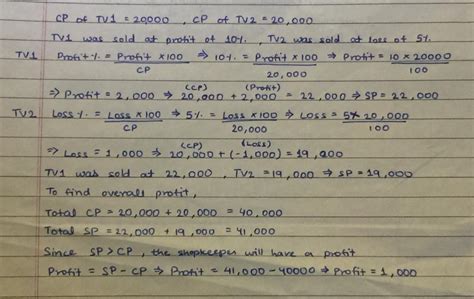 CP of TV1 = 20000 , CP of TV2 = 20,000
TV1 was sold at profit of 10% , TV2 was sold at loss of 5%
TV1 Profit% = Profit × 100 / CP ⇒ 10% = Profit × 100 / 20,000 ⇒ Profit = 10 × 20000 / 100
(CP) (Profit)
⇒ Profit = 2,000 ⇒ 20,000 + 2,000 = 22,000 ⇒ SP = 22,000
TV2 Loss% = Loss × 100 / CP ⇒ 5% = Loss × 100 / 20,000 ⇒ Loss = 5 × 20,000 / 100
(CP) (Loss)
⇒ Loss = 1,000 ⇒ 20,000 + (-1,000) = 19,000
TV1 was sold at 22,000 , TV2 = 19,000 ⇒ SP = 19,000
To find overall profit,
Total CP = 20,000 + 20,000 = 40,000
Total SP = 22,000 + 19,000 = 41,000
Since SP > CP , the shopkeeper will have a profit
Profit = SP - CP ⇒ Profit = 41,000 - 40000 ⇒ Profit = 1,000